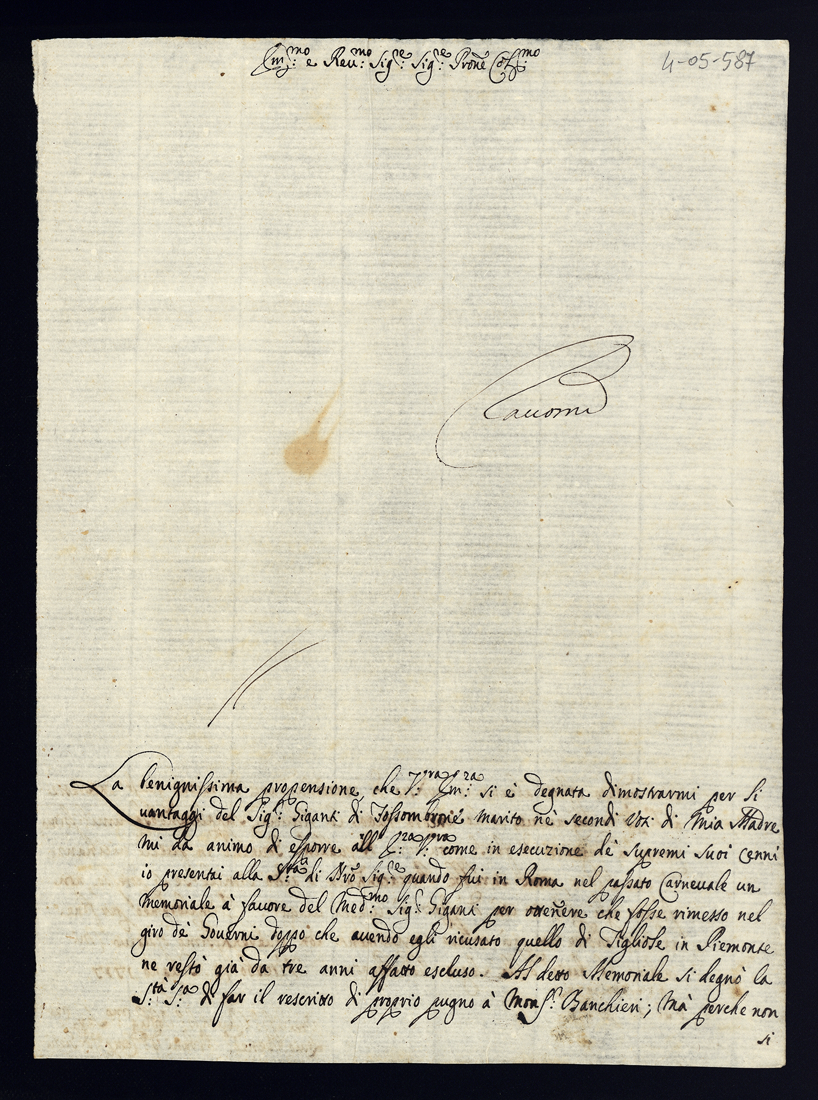 Em:mo e Reu:mo Sig:e Sig:e Prone Col:mo
4-05-587
La benignissima propensione che V:ra Em:za si è degnata dimostrarmi per li
uantaggi del Sig:e Giganti di Fossombrone marito ne secondi Voti di Mia Madre
mi dà animo di esporre all' E:za V:ra come in esecuzione de supremi suoi cenni
io presentai alla S:tà di Nro Sig:e quando fui in Roma nel passato Carneuale un
Memoriale à fauore del Med:mo Sig:e Giganti per ottenere che fosse rimesso nel
giro de Gouerni doppo che auendo egli ricusato quello di Tigliole in Piemonte
ne restò già da tre anni affatto escluso. Al detto Memoriale si degnò la
S:tà S:a di far il rescritto di proprio pugno à Mons:r Banchieri; Mà perche non
si